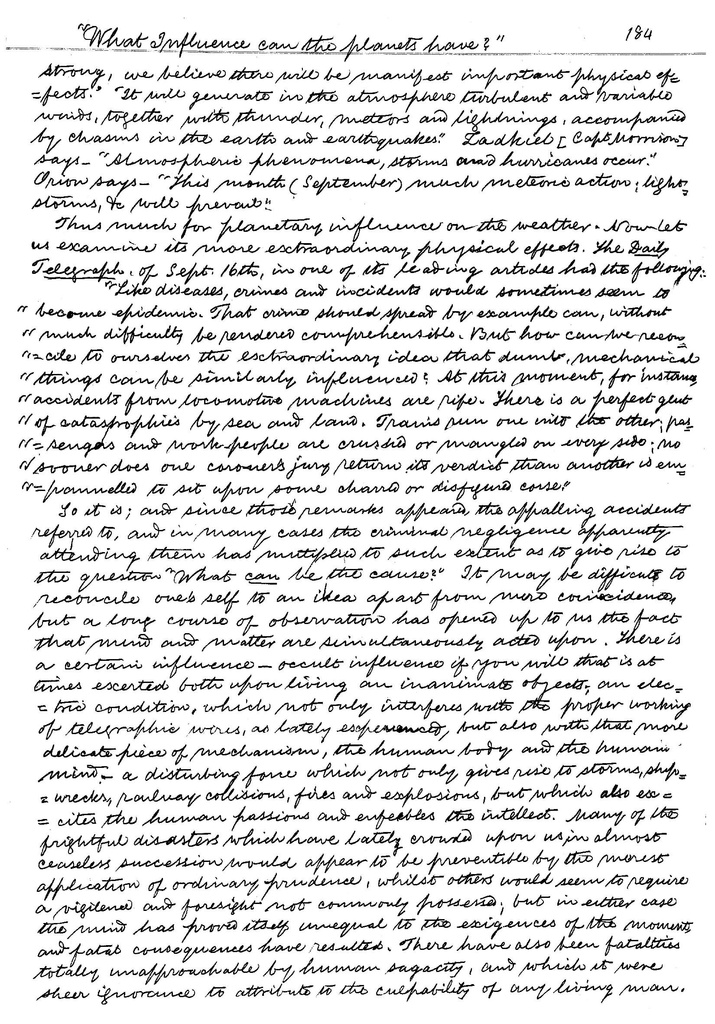 "What Influence can the planets have?" 184
strong, we believe there will be manifest important physical ef=
=fects." "It will generate in the atmosphere turbulent and variable
winds, together with thunder, meteors and lightnings, accompanied
by chasms in the earth and earthquakes." Zadkiel [Capt Morrison]
says – "Atmospheric phenomena, storms and hurricanes occur."
Orion says – "This month (September) much meteoric action; light=
storms, &c will prevail".
Thus much for planetary influence on the weather. Now let
us examine its more extraordinary physical effects. The Daily
Telegraph, of Sept. 16th, in one of its leading articles had the following:
"Like diseases, crimes and incidents would sometimes seem to
" become epidemic. That crime should spread by example can, without
" much difficulty be rendered comprehensible. But how can we recon
"=cile to ourselves the extraordinary idea that dumb, mechanical
" things can be similarly influenced? At this moment, for instance
" accidents from locomotive machines are rife. There is a perfect glut
" of catastrophies by sea and land. Trains run one into the other; pas=
"=sengers and work-people are crushed or mangled on every side; no
" sooner does one coroner's jury return its verdict than another is em=
"=pannelled to sit upon some charred or disfigured corse."
So it is; and since those remarks appeared, the appalling accidents
referred to, and in many cases the criminal negligence apparently
attending them has multiplied to such extent as to give rise to
the question "What can be the cause?" It may be difficult to
reconcile one's self to an idea apart from mere coincidence,
but a long course of observation has opened up to us the fact
that mind and matter are simultaneously acted upon. There is
a certain influence – occult influence if you will that is at
times exerted both upon living an inanimate objects; an elec=
=tric condition, which not only interferes with the proper working
of telegraphic wires, as lately experienced, but also with that more
delicate piece of mechanism, the human body and the human
mind, – a disturbing force which not only gives rise to storms, ship=
=wrecks, railway collisions, fires and explosions, but which also ex=
=cites the human passions and enfeebles the intellect. Many of the
frightful disasters which have lately crowded upon us in almost
ceaseless succession would appear to be preventible by the merest
application of ordinary prudence, whilst others would seem to require
a vigilence and foresight not commonly possessed; but in either case
the mind has proved itself unequal to the exigences of the moment,
and fatal consequences have resulted. There have also been fatalities
totally unapproachable by human sagacity, and which it were
sheer ignorance to attribute to the culpability of any living man.